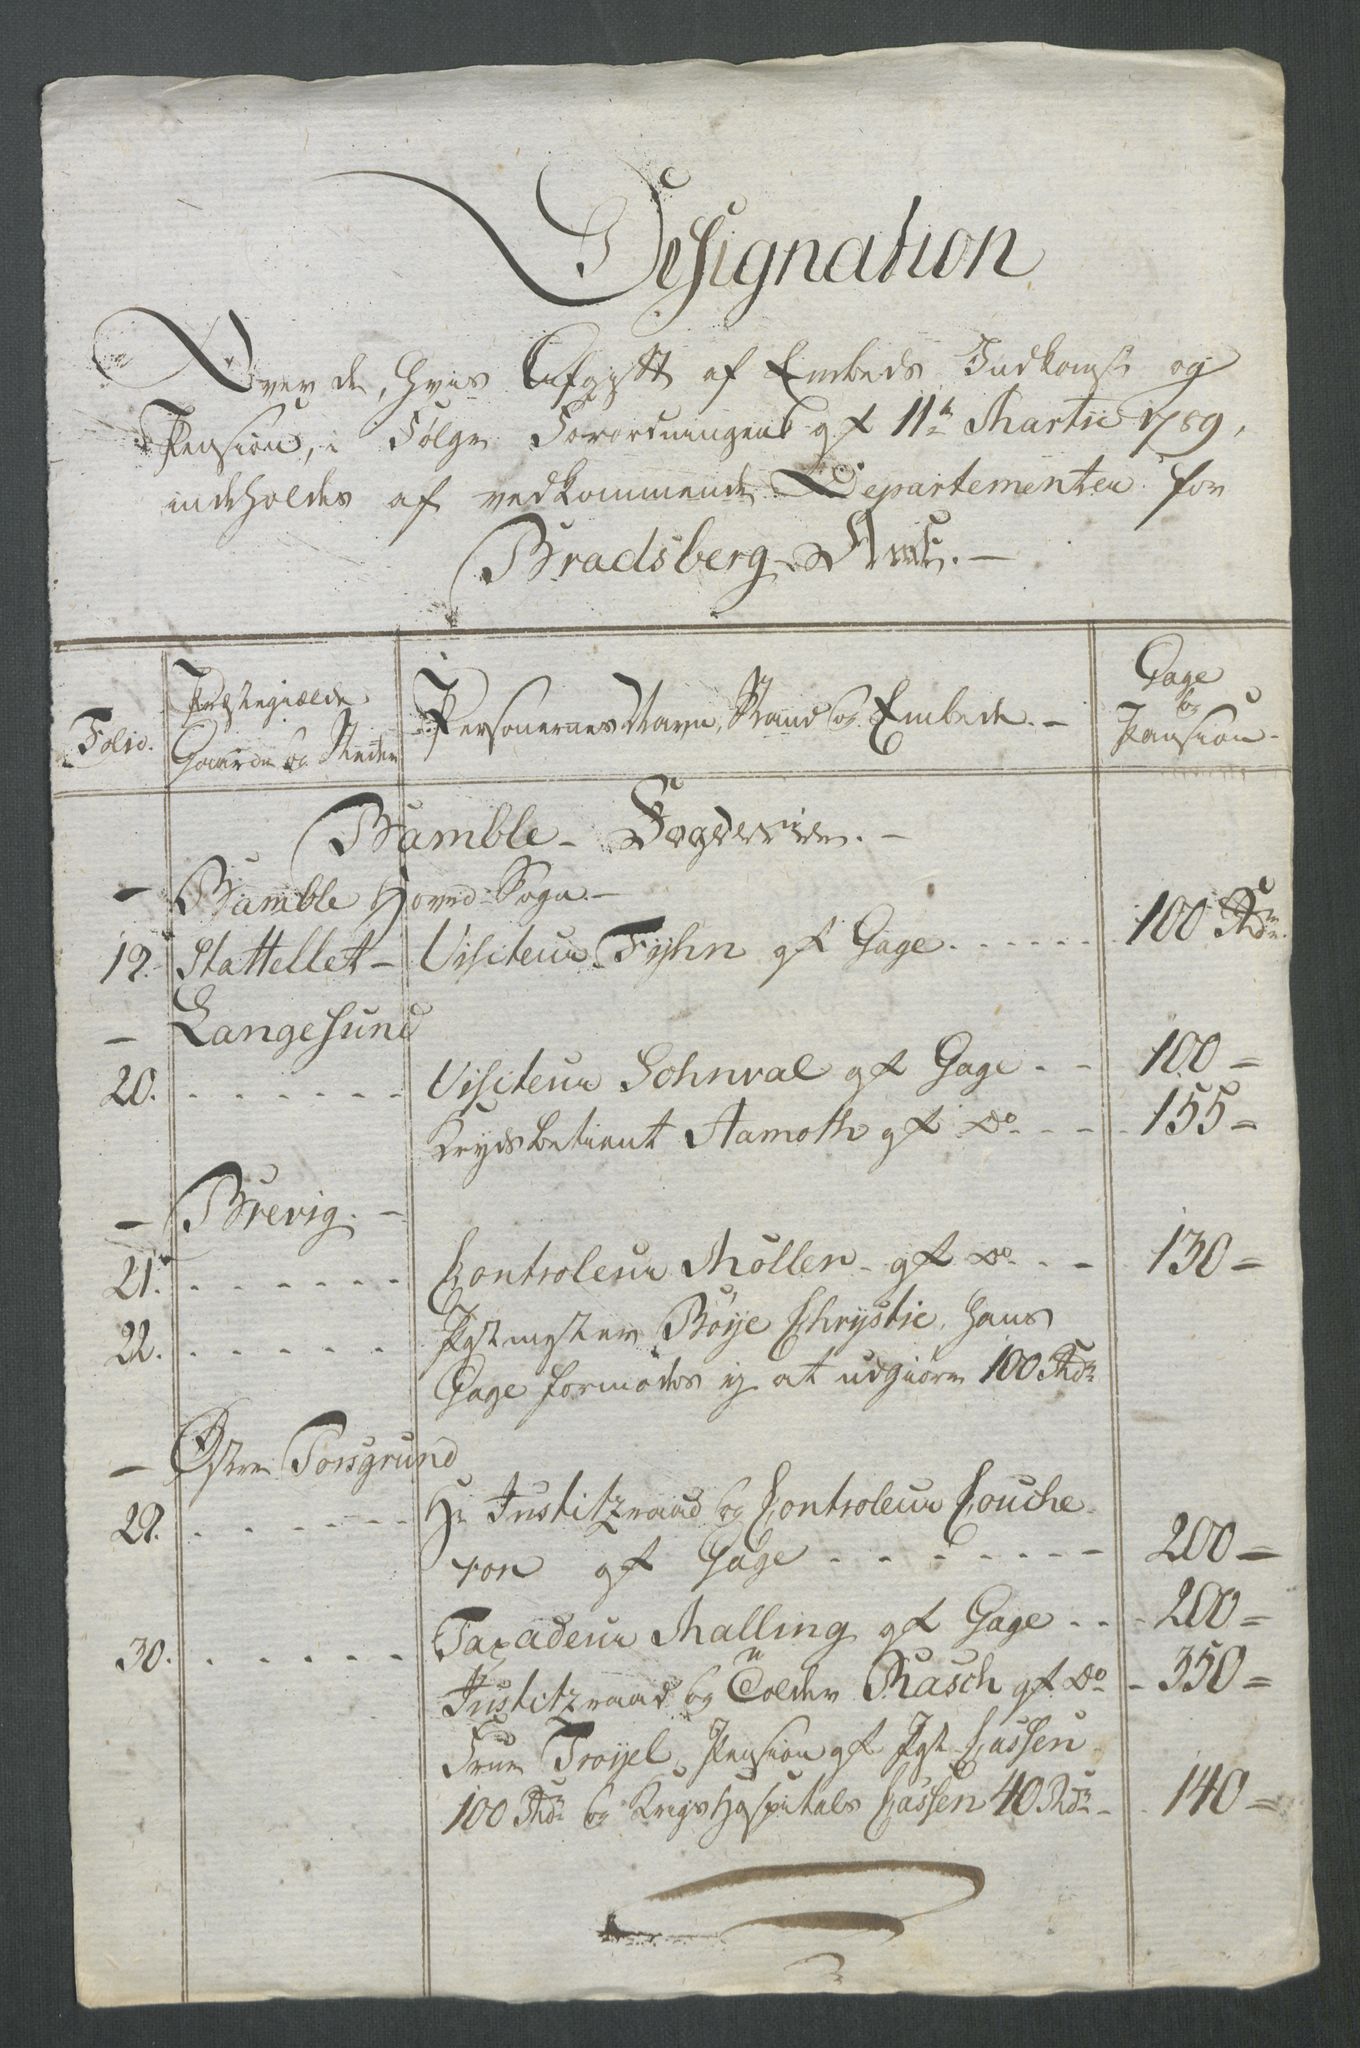 Designation
Over de, hvis Afgift af Embeds Indkomst og
Pension, i Følge Forordningens af 11te Martii 1789,
indeholdes af vedkommende Departementer for
Bradsberg Amt. —
Folio. Præstegiælde Gaarde og Steder Personernes Navn, Stand og Embede. — Gage og Pansion
Bamble Fogderie. —
— Bamble Hoved Sogn —
19. Stattellet — Visiteur Fishn af Gage . . . . . . 100 Rdr
— Langesund
20. . . . . . . Visiteur Sohnval af Gage . - 100 =
Krydsbetient Aamoth af Do . - - - 155 =
— Brevig. —
21. . . . . . . Controleur Møller af Do . . - 130 =
22. . . . . . Postmester Böye Chrystie, hans
Gage formodes ej at udgiøre 100 Rdr
— Østre Porsgrund
29. . . . . . . Hr Justitzraad og Controleur Couche-
ron af Gage . . . . . . . . 200 =
Taxadeur Malling af Gage . . . 200 =
30. . . . . . . Justitzraad og Tolder Rasch af Do . 350 =
Frue Troyel, Pension af Post Cassen
100 Rdr og Krigshospitals Cassen 40 Rdr . . 140 =